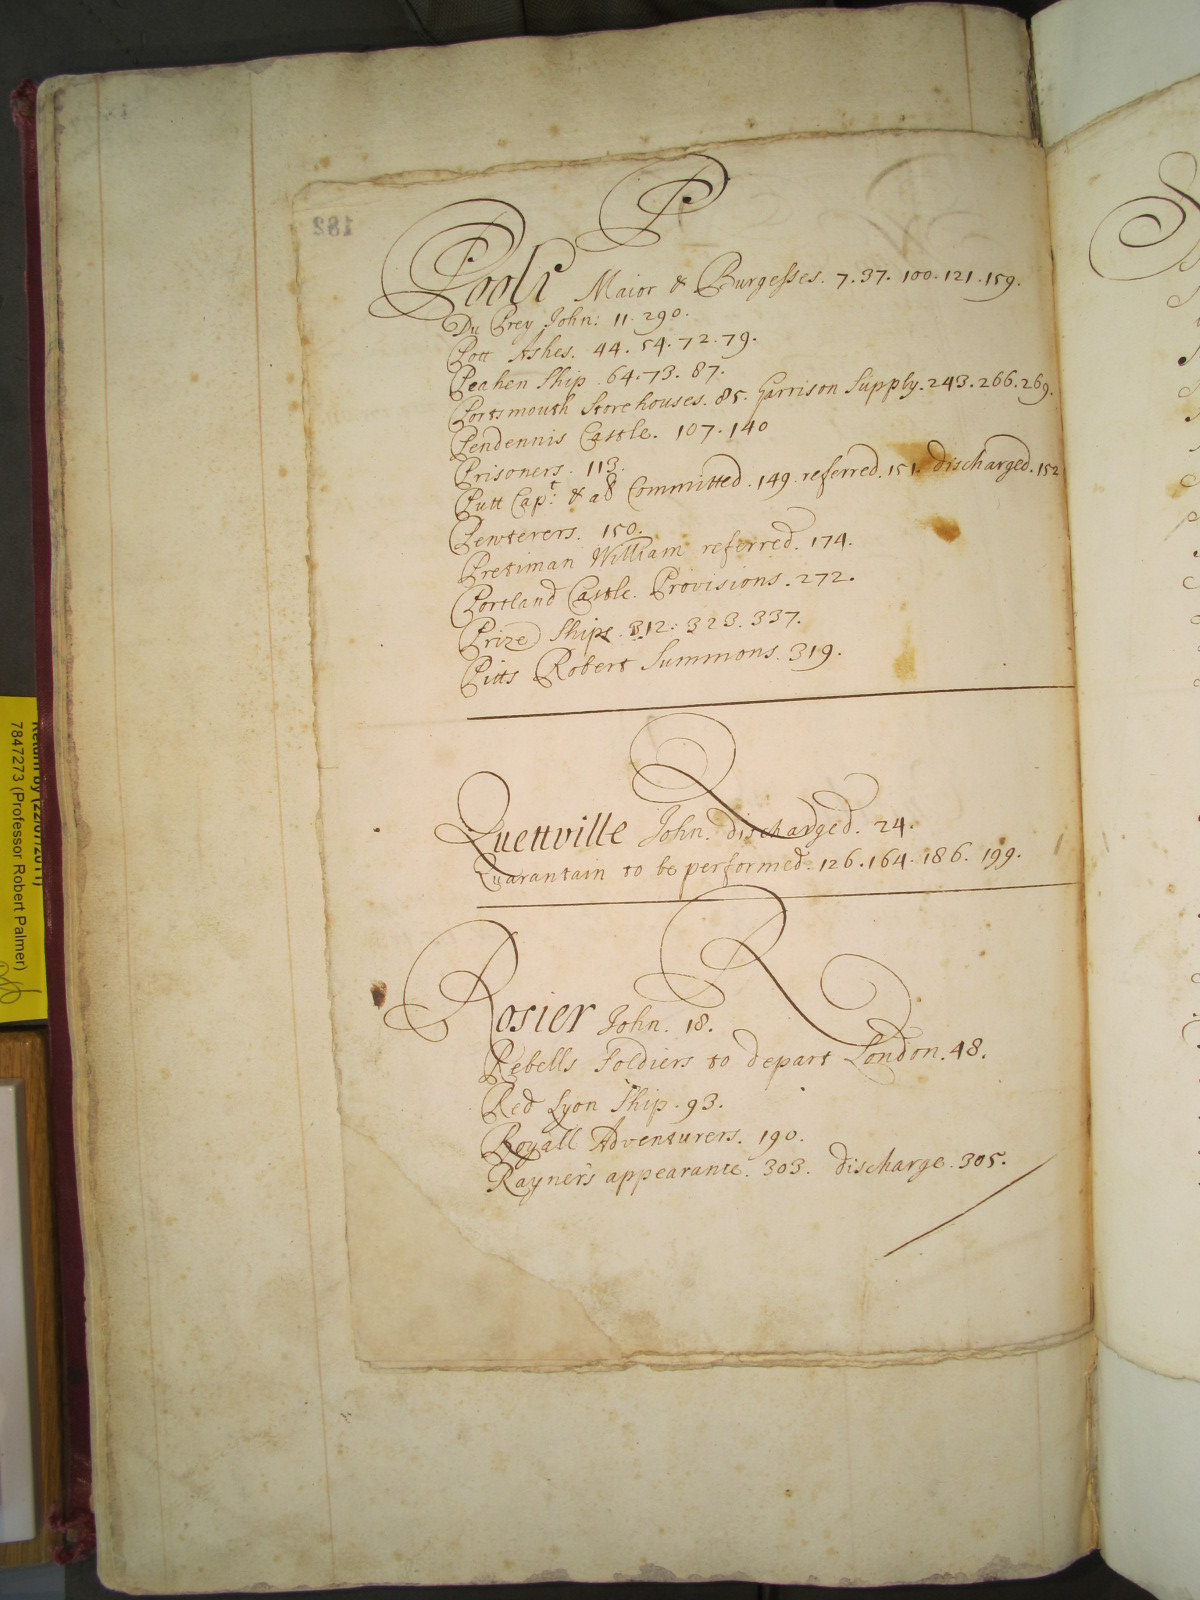 P
Poole Maior & Burgesses. 7. 37. 100. 121. 159.
Du Prey John: 11. 290.
Pott Ashes. 44. 54. 72. 79.
Peahen Ship. 64. 73. 87.
Portsmouth Storehouses. 85. Garrison Supply. 243. 266. 269.
Pendennis Castle. 107. 140
Prisoners. 113.
Putt Capt: & al Committed. 149. referred. 151. discharged. 152
Pewterers. 150.
Pretiman William referred. 174.
Portland Castle. Provisions. 272.
Prize Ships. 312: 323. 337.
Pitts Robert Summons. 319.
Q
Quettville John. discharged. 24.
Quarantain to be performed. 126. 164. 186. 199.
R
Rosier John. 18.
Rebells Soldiers to depart London. 48.
Red Lyon Ship. 93.
Royall Adventurers. 190.
Rayner's appearance. 303. discharge. 305.
182
Return by (22/07/2011)
7847273 (Professor Robert Palmer)